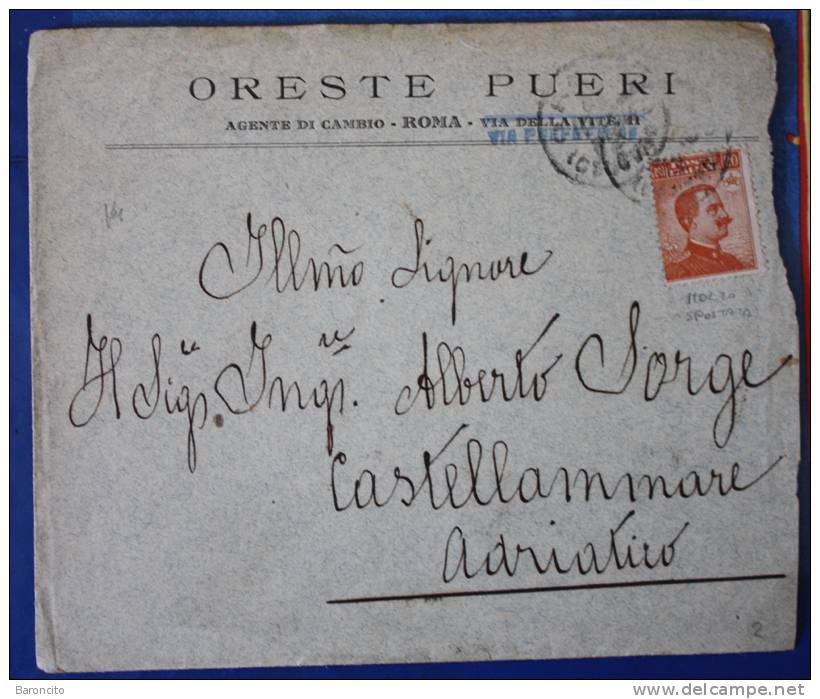 ORESTE PUERI
AGENTE DI CAMBIO - ROMA - VIA DELLA VITE, 11
20
Illmo Signore
Il Sigr. Ingr. Alberto Sorge
Castellammare
Adriatico
SPOSTATA
2
Baroncito
delcampe.net